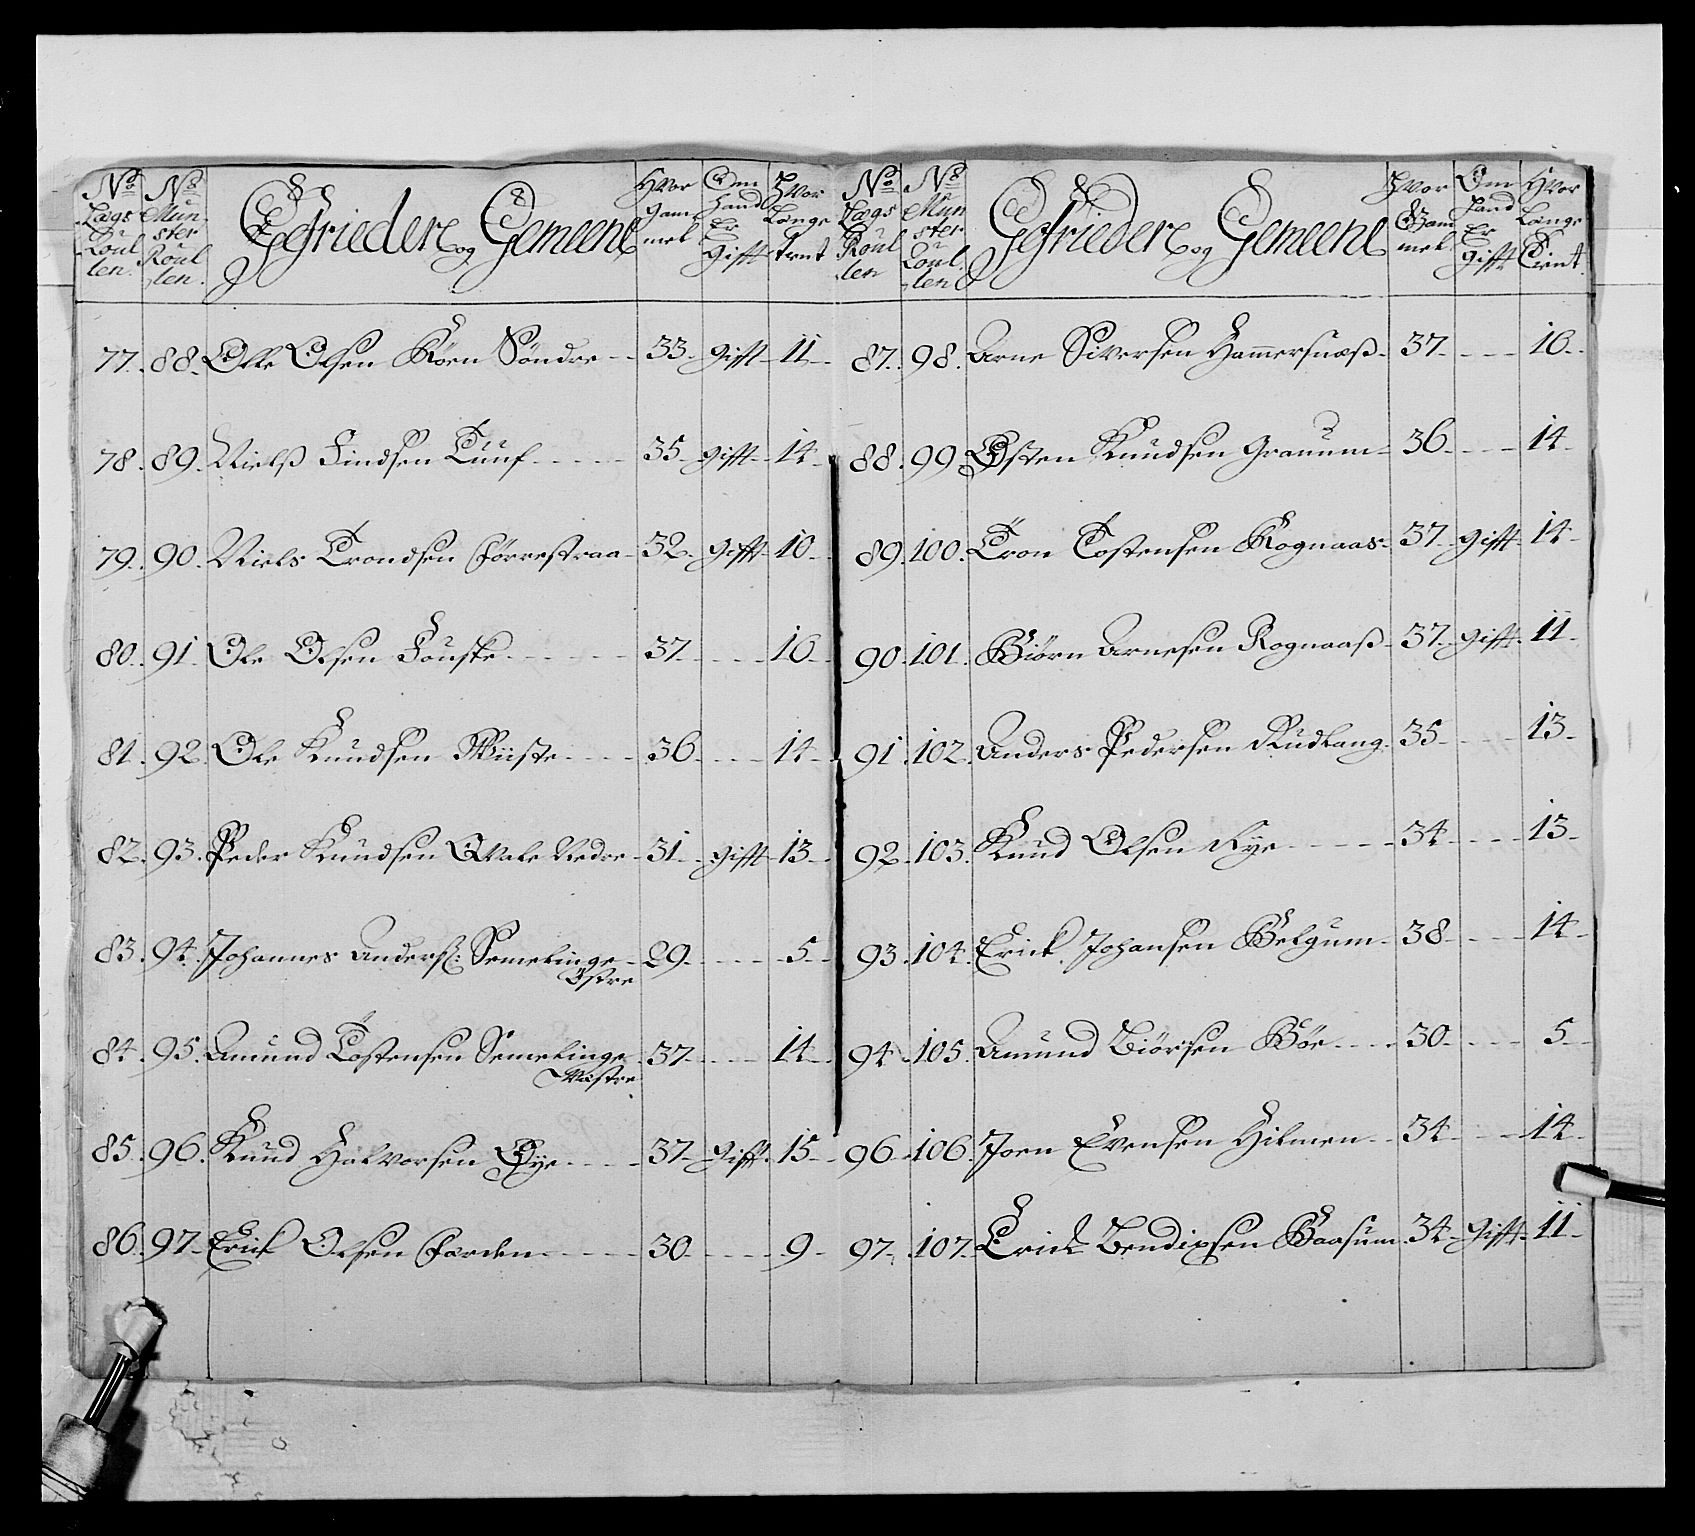 No Lægs Roul len.
No Mun ster Roul len.
Gefrieder og Gemeene
Hvor gam mel
Om hand Er Gift
Hvor Længe tient
77. 88. Olle Olsen Kören Söndre 33. gift 11
78. 89. Niels Findsen 35 gift 14
79. 90. Niels Trondsen 32. gifft 10
80. 91. Ole Olsen Fouske 37 16
81. 92 Ole Knudsen 36 14
82. 93. Peder Knudsen Qvale Nedre 31 gifft 13
83. 94. Johannes Anders: Semelinge Östre 29 5
84. 95. Amund Tostensen Semelinge Væstre 37 14
85. 96. Knud Halvorsen Rye 37 gift 15
86. 97. Erick Olsen Garden 30 9
No Lægs Roul len
No Mun ster Roul len
Gefrieder og Gemeene
Hvor Gam mel
Om hand Er gift
Hvor Længe Tient
87. 98. Arne Siversen Hammersnæss 37 16
88. 99 Østen Knudsen Grauum 36 14
89. 100. Tron Tostensen Rognaas 37 gift 14
90. 101. Biörn Arnesen Rognaass 37 gift 11
91. 102. Anders Pedersen Rudlang 35 13
92. 103. Knud Olsen Rye 34 13
93. 104. Erick Johansen Belgum 38 14
94 105. Amund Biörsen Böe 30 5
96 106. Joen Evensen Hilmen 34 14
97. 107. Erick Bendixsen Baasum 34 gifft 11